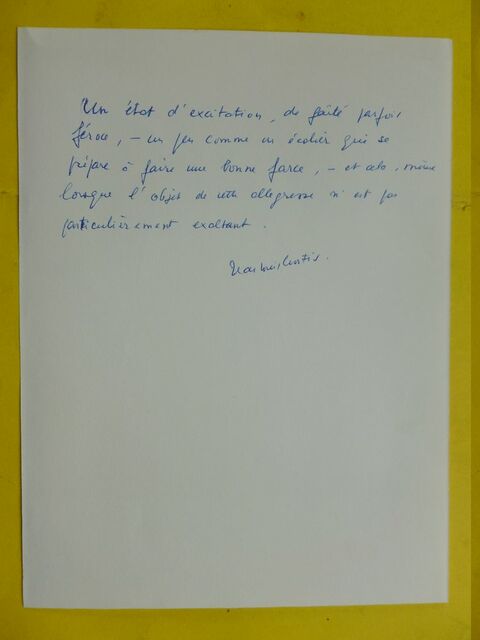 Un état d'excitation, de gaîté parfois
féroce, – un peu comme un écolier qui se
prépare à faire une bonne farce, – et cela, même
lorsque l'objet de cette allégresse n'est pas
particulièrement exaltant.
Jean Louis Curtis.